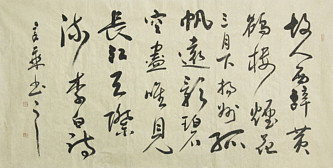 故人西辞黄
鹤楼烟花
三月下扬州孤
帆远影碧
空尽唯见
长江天际
流李白诗
书之